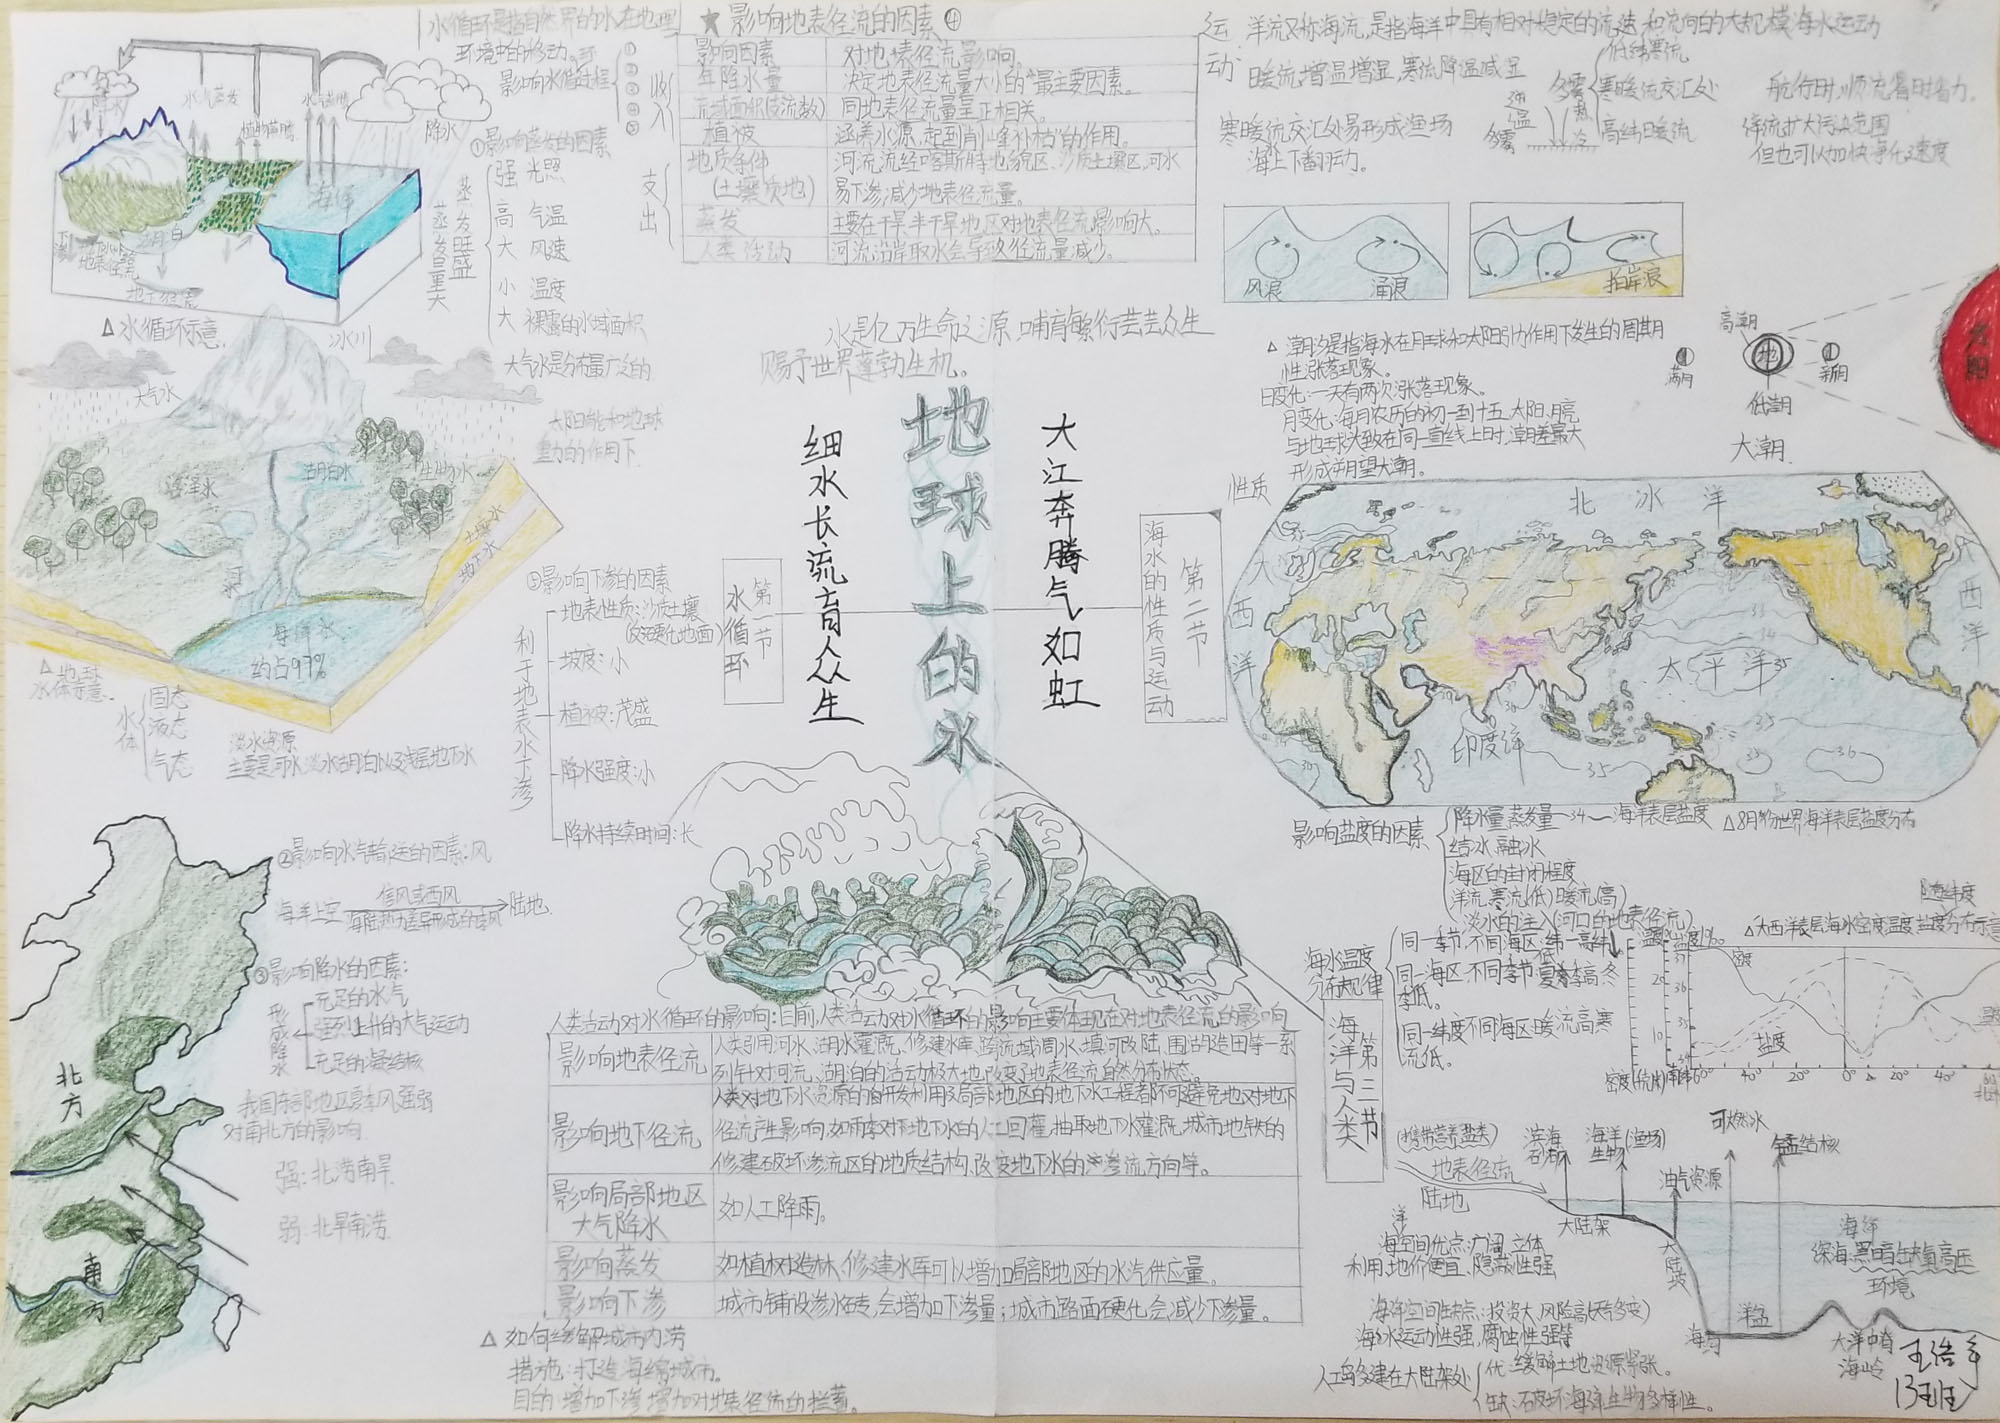 水循环是指自然界的水在地理
环境中的移动。
影响水循环过程
① ② ③ ④ ⑤
水汽蒸发
植物蒸腾
降水
海洋
下渗
地表径流
地下径流
△水循环示意
①影响蒸发的因素
强 光照
高 气温
大 风速
小 湿度
大 裸露的水域面积
蒸发旺盛
蒸发量大
收入
支出
★影响地表径流的因素④
影响因素 对地表径流影响。
年降水量 决定地表径流量大小的“最主要因素。
流域面积(支流数) 同地表径流量呈正相关。
植被 涵养水源,起到“削峰补枯”的作用。
地质条件 河流流经喀斯特地貌区、沙质土壤区,河水
(土壤质地) 易下渗,减少地表径流量。
蒸发 主要在干旱半干旱地区对地表径流影响大。
人类活动 河流沿岸取水会导致径流量减少。
运动
洋流又称海流,是指海洋中具有相对稳定的流速和流向的大规模海水运动
暖流:增温增湿,寒流:降温减湿
寒暖流交汇处易形成渔场
海水上下翻动。
多雾
低纬寒流
寒暖流交汇处
高纬暖流
航行时,顺流省时省力。
洋流扩大污染范围
但也可以加快净化速度
风浪
涌浪
拍岸浪
水是亿万生命之源,哺育繁衍芸芸众生
赐予世界蓬勃生机。
△潮汐是指海水在月球和太阳引力作用下发生的周期
性涨落现象。
日变化:一天有两次涨落现象。
月变化:每月农历的初一到十五,太阳、月亮
与地球大致在同一直线上时,潮差最大
形成朔望大潮。
高潮
满月
地
新月
低潮
大潮
太阳
冰川
大气水
大气水是分布最广泛的
太阳能和地球
重力的作用下
湖泊水
生物水
沼泽水
河流
土壤水
地下水
海洋水
约占97%
△地球
水体示意.
水体
固态
液态
气态
淡水资源
主要是河水、淡水湖泊以及浅层地下水
⑤影响下渗的因素
利于地表水下渗
地表性质:沙质土壤
坡度:小
植被:茂盛
降水强度:小
降水持续时间:长
第一节
水循环
细水长流育众生
地球上的水
大江奔腾气如虹
第二节
海水的性质与运动
性质
北冰洋
大西洋
太平洋
大西洋
印度洋
35
△8月份世界海洋表层盐度分布
影响盐度的因素
降水量 蒸发量
—34—海洋表层盐度
结冰 融冰
海区的封闭程度
洋流:寒流(低)暖流(高)
淡水的注入(河口的地表径流)
②影响水气输送的因素:风
海洋上空
信风或西风
海陆热力差异形成的季风
陆地
③影响降水的因素:
形成降水
充足的水气
强烈上升的大气运动
充足的凝结核
我国东部地区夏季风强弱
对南北方的影响
强:北涝南旱
弱:北旱南涝
北方
南方
人类活动对水循环的影响:目前,人类活动对水循环的影响主要体现在对地表径流的影响
影响地表径流
人类引用河水、湖水灌溉、修建水库、跨流域调水、填河改陆、围湖造田等一系
列针对河流、湖泊的活动极大地改变了地表径流自然分布状态。
影响地下径流
人类对地下水资源的开发利用及局部地区的地下水工程都不可避免地对地下
径流产生影响,如雨季对地下水的人工回灌,抽取地下水灌溉,城市地铁的
修建破坏渗流区的地质结构,改变地下水的渗流方向等。
影响局部地区
大气降水
如人工降雨。
影响蒸发
如植树造林、修建水库可以增加局部地区的水汽供应量。
影响下渗
城市铺设渗水砖,会增加下渗量;城市路面硬化会减少下渗量。
△如何缓解城市内涝
措施:打造海绵城市。
目的:增加下渗,增加对地表径流的拦蓄。
海水温度
分布规律
同一季节,不同海区:纬一高纬低
同一海区,不同季节:夏季高冬
季低。
同一纬度不同海区暖流高寒
流低。
随纬度
△大西洋表层海水密度温度盐度分布示意
温度℃
盐度‰
密度
盐度
20
10
37
36
35
34
60° 40° 20° 0° 20° 40°
第三节
海洋与人类
(携带营养盐类)
地表径流
陆地
滨海砂矿
海洋生物(渔场)
可燃冰
油气资源
锰结核
大陆架
大陆坡
海沟
洋盆
大洋中脊
海岭
海洋
深海:黑暗缺氧高压
环境
海洋空间优点:广阔、立体
利用:地价便宜、隐蔽性强
海洋空间缺点:投资大、风险高(天气多变)
海水运动性强,腐蚀性强等
人工岛多建在大陆架处
优:缓解土地资源紧张。
缺:破坏海洋生物多样性。
13班